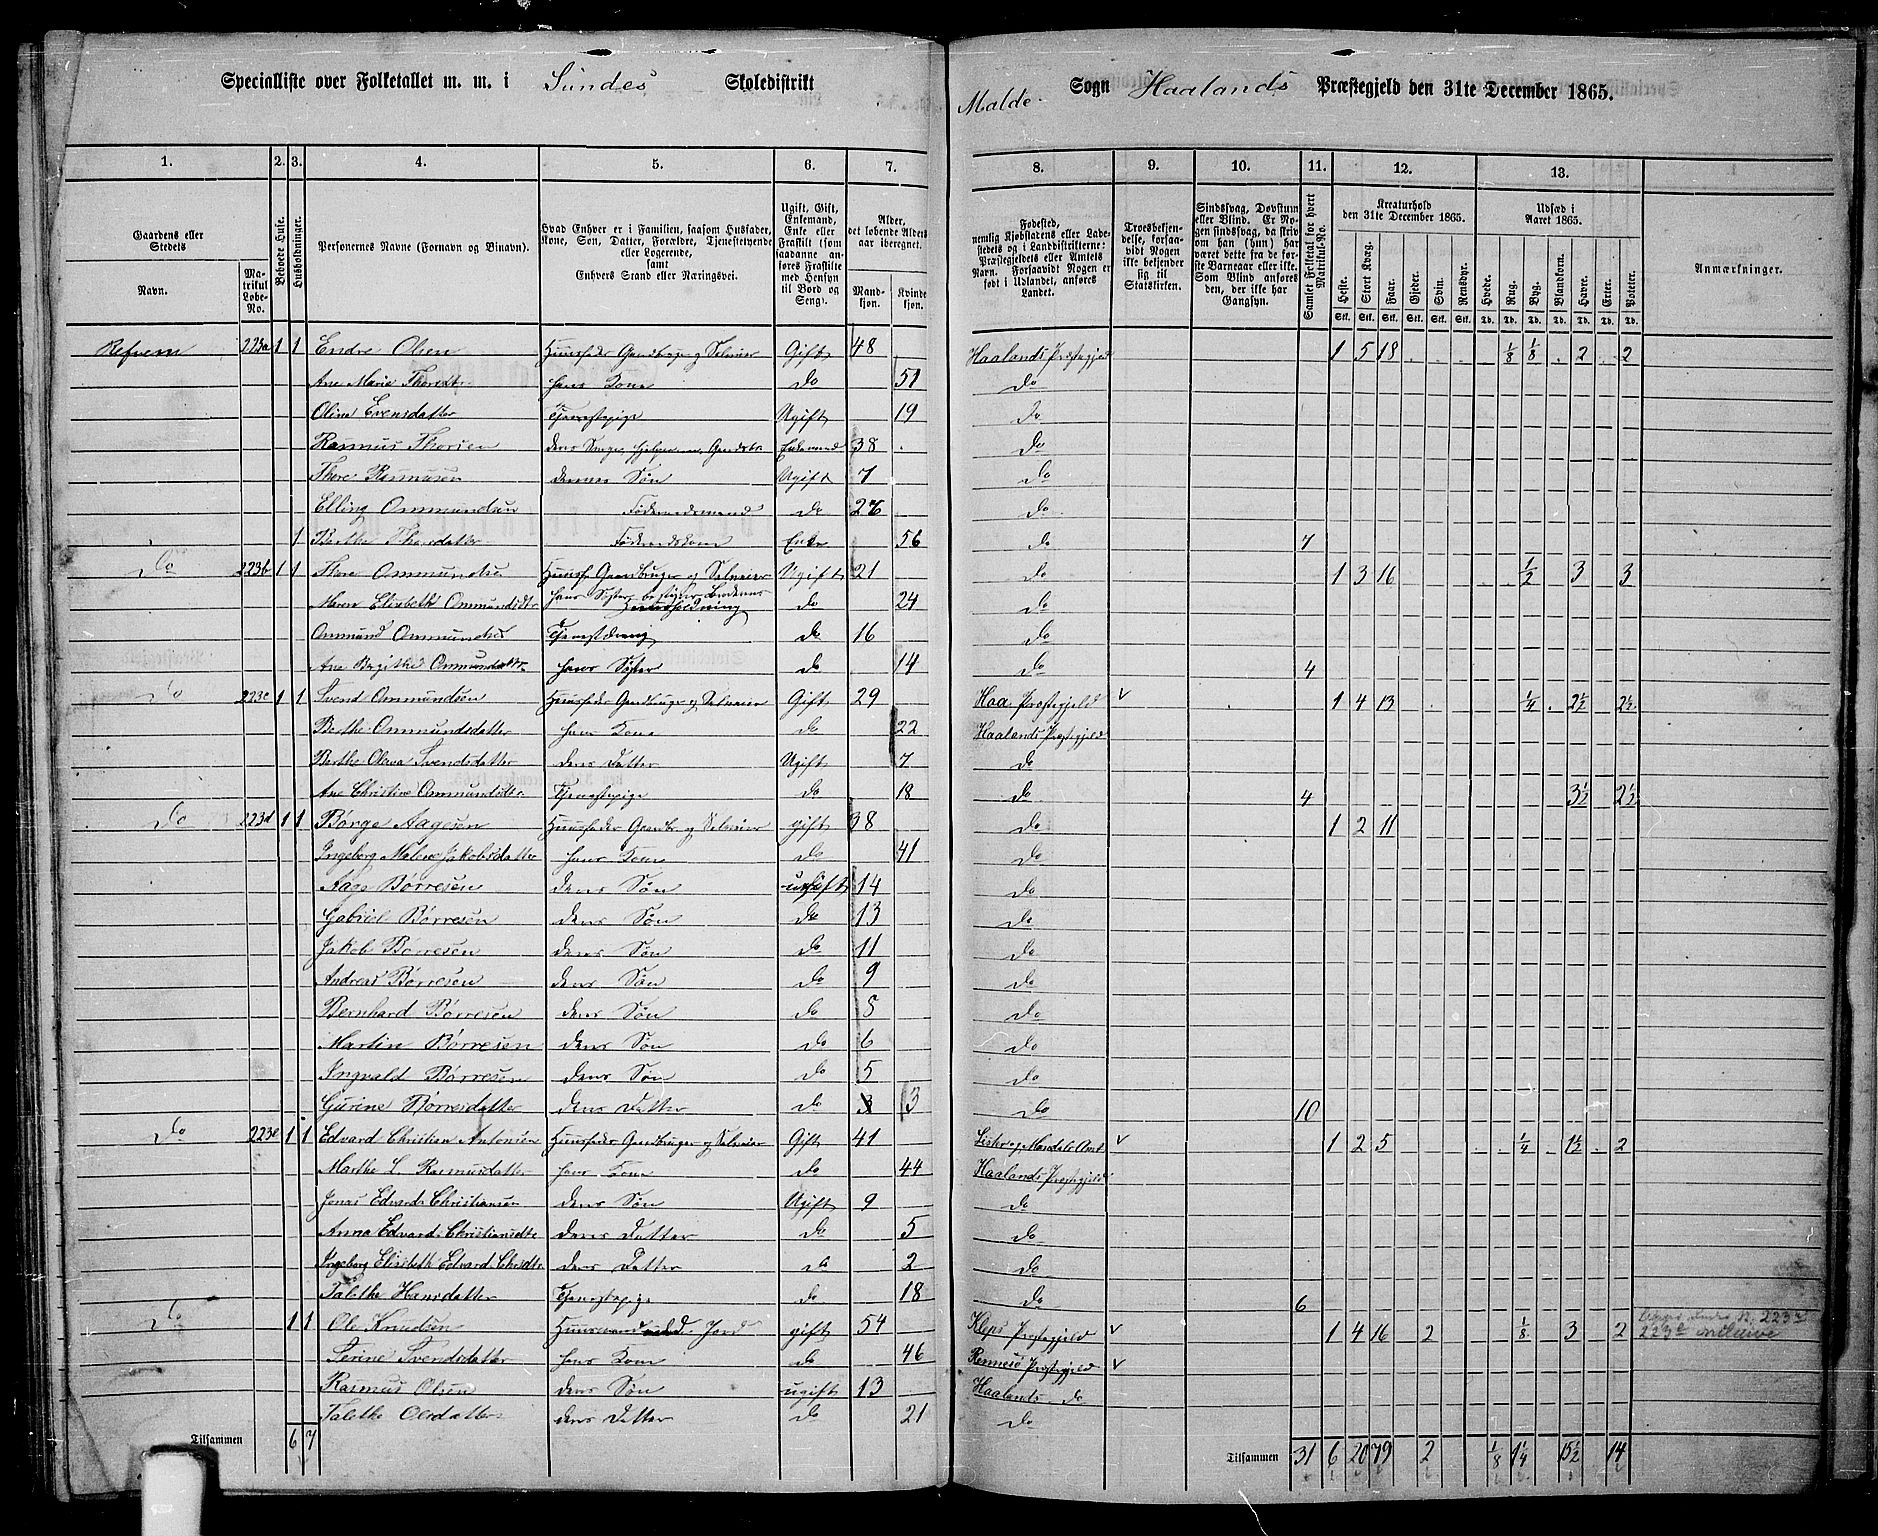 Specialliste over Folketallet m. m. i Sundes Skoledistrikt
Malde Sogn Haalands Præstegjeld den 31te December 1865.
1. 2. 3. 4. 5. 6. 7. 8. 9. 10. 11. 12. 13.
Gaardens eller Stedets
Navn.
Matrikul Løbe-No.
Beboede Huse.
Husholdninger.
Personernes Navne (Fornavn og Binavn).
Hvad Enhver er i Familien, saasom Husfader, Kone, Søn, Datter, Forældre, Tjenestetyende eller Logerende, samt Enhvers Stand eller Næringsvei.
Ugift, Gift, Enkemand, Enke eller Fraskilt (som saadanne anføres Fraskilte med Hensyn til Bord og Seng).
Alder, det løbende Alders aar iberegnet.
Mandkjøn. Kvindekjøn.
Fødested, nemlig Kjøbstadens eller Ladestedets og i Landdistrikterne: Præstegjeldets eller Amtets Navn. Forsaavidt Nogen er født i Udlandet, anføres Landet.
Troesbekjendelse, forsaavidt Nogen ikke bekjender sig til Statskirken.
Sindssvag, Døvstum eller Blind. Er Nogen sindssvag, da skriv om han (hun) har været dette fra de første Barneaar eller ikke. Som Blind anføres den, der ikke har Gangsyn.
Samlet Folketal for hvert Matrikul-No.
Kreaturhold den 31te December 1865.
Heste. Stort Kvæg. Faar. Gjeder. Svin. Rensdyr.
Udsæd i Aaret 1865.
Hvede. Rug. Byg. Blandkorn. Havre. Erter. Poteter.
Anmærkninger.
Refnem 223a 1 1 Endre Olsen Huusfader Gaardbruger og Selveier Gift 48 Haalands Præstegjeld 1 5 18 1/8 1/8 2 2
Ane Marie Thorsdtr hans Kone do 51 do
Olina Evensdatter Tjenestepige Ugift 19 do
Rasmus Thorsen Enkemand 38 do
Thore Rasmusen dennes Søn Ugift 7 do
Elling Ommundsen Føderaadsmand do 27 do
Do 1 Berthe Thorsdatter Føderaadskone Enke 56 do 7
Do 223b 1 1 Thore Ommundsen Huusf. Gaardbruger og Selveier Ugift 21 do 1 3 16 1/2 3 3
Maren Elisabeth Ommundsdtr hans Søster bestyrer Broderens Huusholdning do 24 do
Ommund Ommundsen Tjenestedreng do 16 do
Ane Birgithe Ommundsdtr hans Søster do 14 do 4
Do 223c 1 1 Svend Ommundsen Huusfader Gaardbruger og Selveier Gift 29 Haa Præstegjeld 1 4 13 1/4 2 1/2 2 1/2
Berthe Ommundsdatter hans Kone do 22 Haalands Præstegjeld
Berthe Olena Svendsdatter deres Datter Ugift 7 do
Ane Christine Ommundsdtr. Tjenestepige do 18 do 4 3 1/2 2 1/2
Do 223d 1 1 Børge Aagesen Huusfader Gaardbr. og Selveier gift 38 do 1 2 11
Ingeborg Malene Jakobsdatter hans Kone do 41 do
Aage Børresen deres Søn ugift 14 do
Gabriel Børresen deres Søn do 13 do
Jakob Børresen deres Søn do 11 do
Andreas Børresen deres Søn do 9 do
Bernhard Børresen deres Søn do 8 do
Martin Børresen deres Søn do 6 do
Ingvald Børresen deres Søn do 5 do
Gurine Børresdatter deres Datter do 3 do 10
Do 223e 1 1 Edvard Christian Antonsen Huusfader Gaardbruger og Selveier Gift 41 Lister og Mandals Amt 1 2 5 1/4 1 1/2 2
Marthe L Rasmusdatter hans Kone do 44 Haalands Præstegjeld
Jonas Edvard Christiansen deres Søn Ugift 9 do
Anna Edvard Christiansdtr deres Datter do 5 do
Ingeborg Elisabeth Edvard Chrsdtr deres Datter do 2 do
Talethe Hansdatter Tjenestepige do 18 do 6
Do 1 1 Ole Knudsen Huusmand med Jord gift 54 Kleps Præstegjeld 1 4 16 2 1/8 3 2 223d inclusive
Serine Svendsdatter hans Kone do 46 Rennesø Præstegjeld
Rasmus Olsen deres Søn ugift 13 Haalands do
Talethe Olsdatter deres Datter do 21 do
Tilsammen 6 7
Tilsammen 31 6 20 79 2 1/8 1 1/4 15 1/2 14